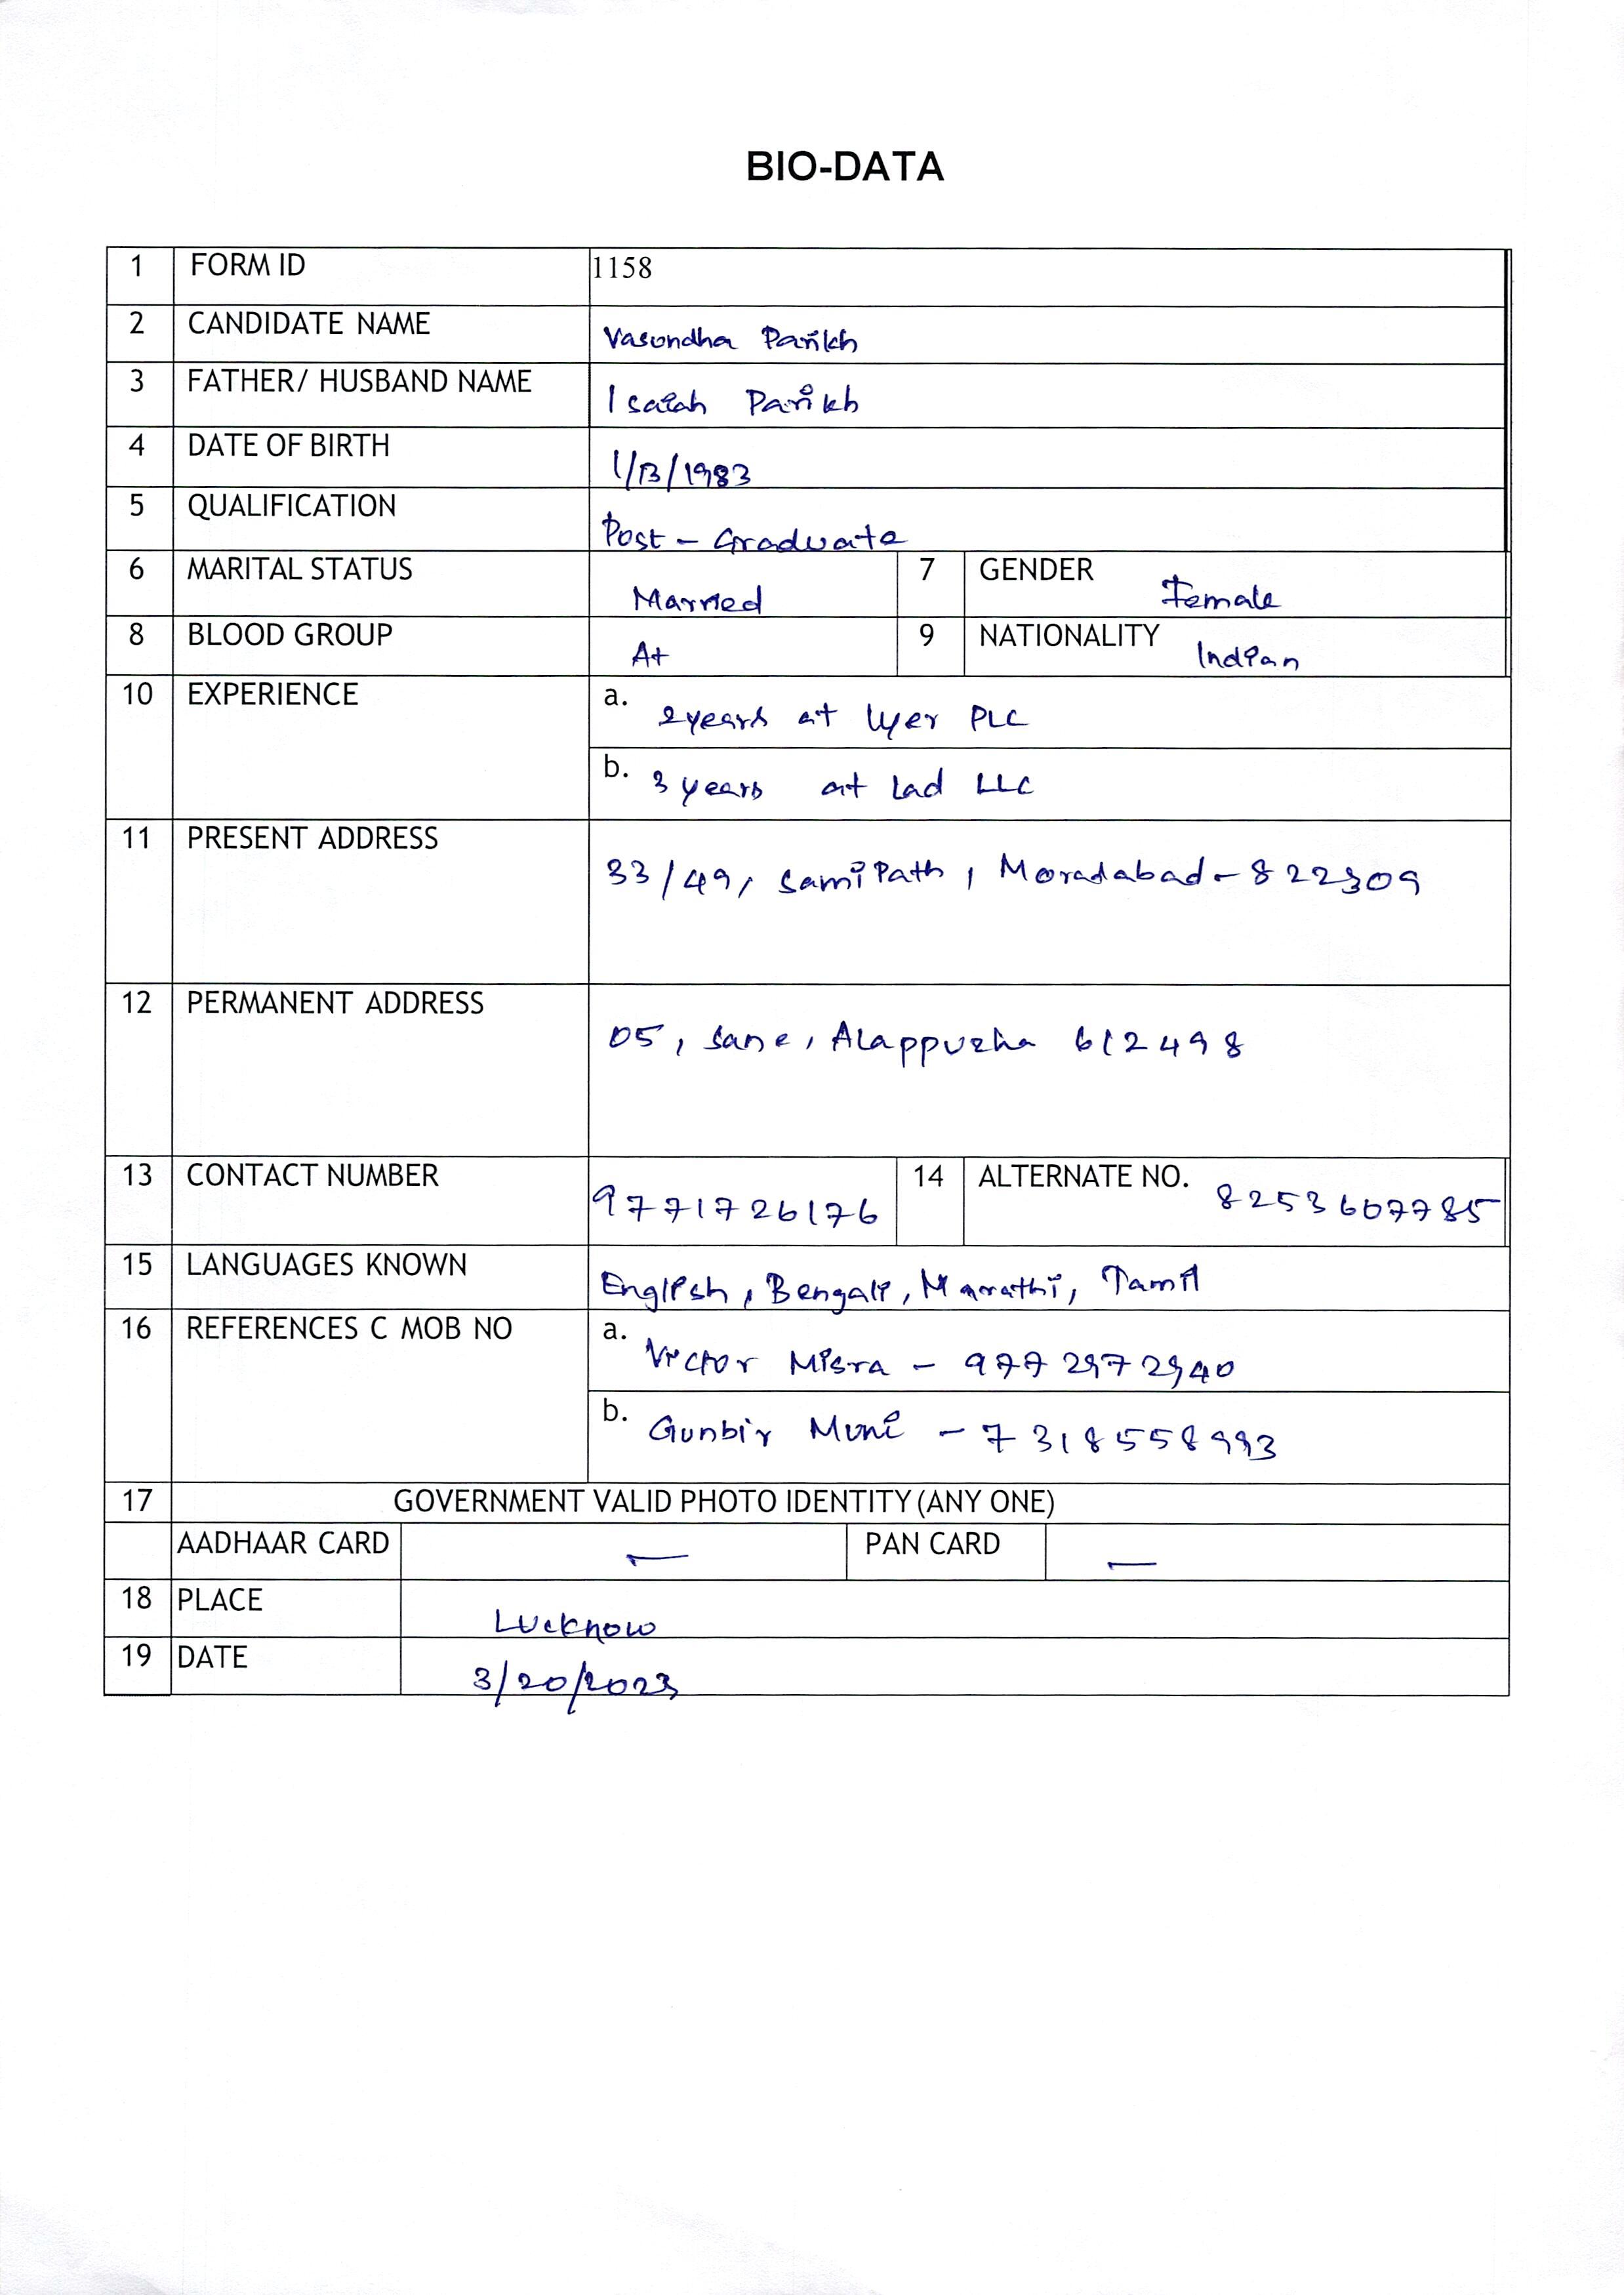 BIO-DATA
1 FORM ID 1158
2 CANDIDATE NAME Vasundha Parikh
3 FATHER/ HUSBAND NAME Isaiah Parikh
4 DATE OF BIRTH 1/13/1983
5 QUALIFICATION Post - Graduate
6 MARITAL STATUS Married 7 GENDER Female
8 BLOOD GROUP A+ 9 NATIONALITY Indian
10 EXPERIENCE a. 2years at Iyer PLC
b. 3 years at Lad LLC
11 PRESENT ADDRESS 33/49, Sami Path, Moradabad - 822309
12 PERMANENT ADDRESS 05, Sane, Alappuzha 612498
13 CONTACT NUMBER 9771726176 14 ALTERNATE NO. 8253607785
15 LANGUAGES KNOWN English, Bengali, Marathi, Tamil
16 REFERENCES C MOB NO a. Victor Misra - 9772972940
b. Gunbir Muni - 7318558993
17 GOVERNMENT VALID PHOTO IDENTITY (ANY ONE)
AADHAAR CARD — PAN CARD —
18 PLACE Lucknow
19 DATE 3/20/2023